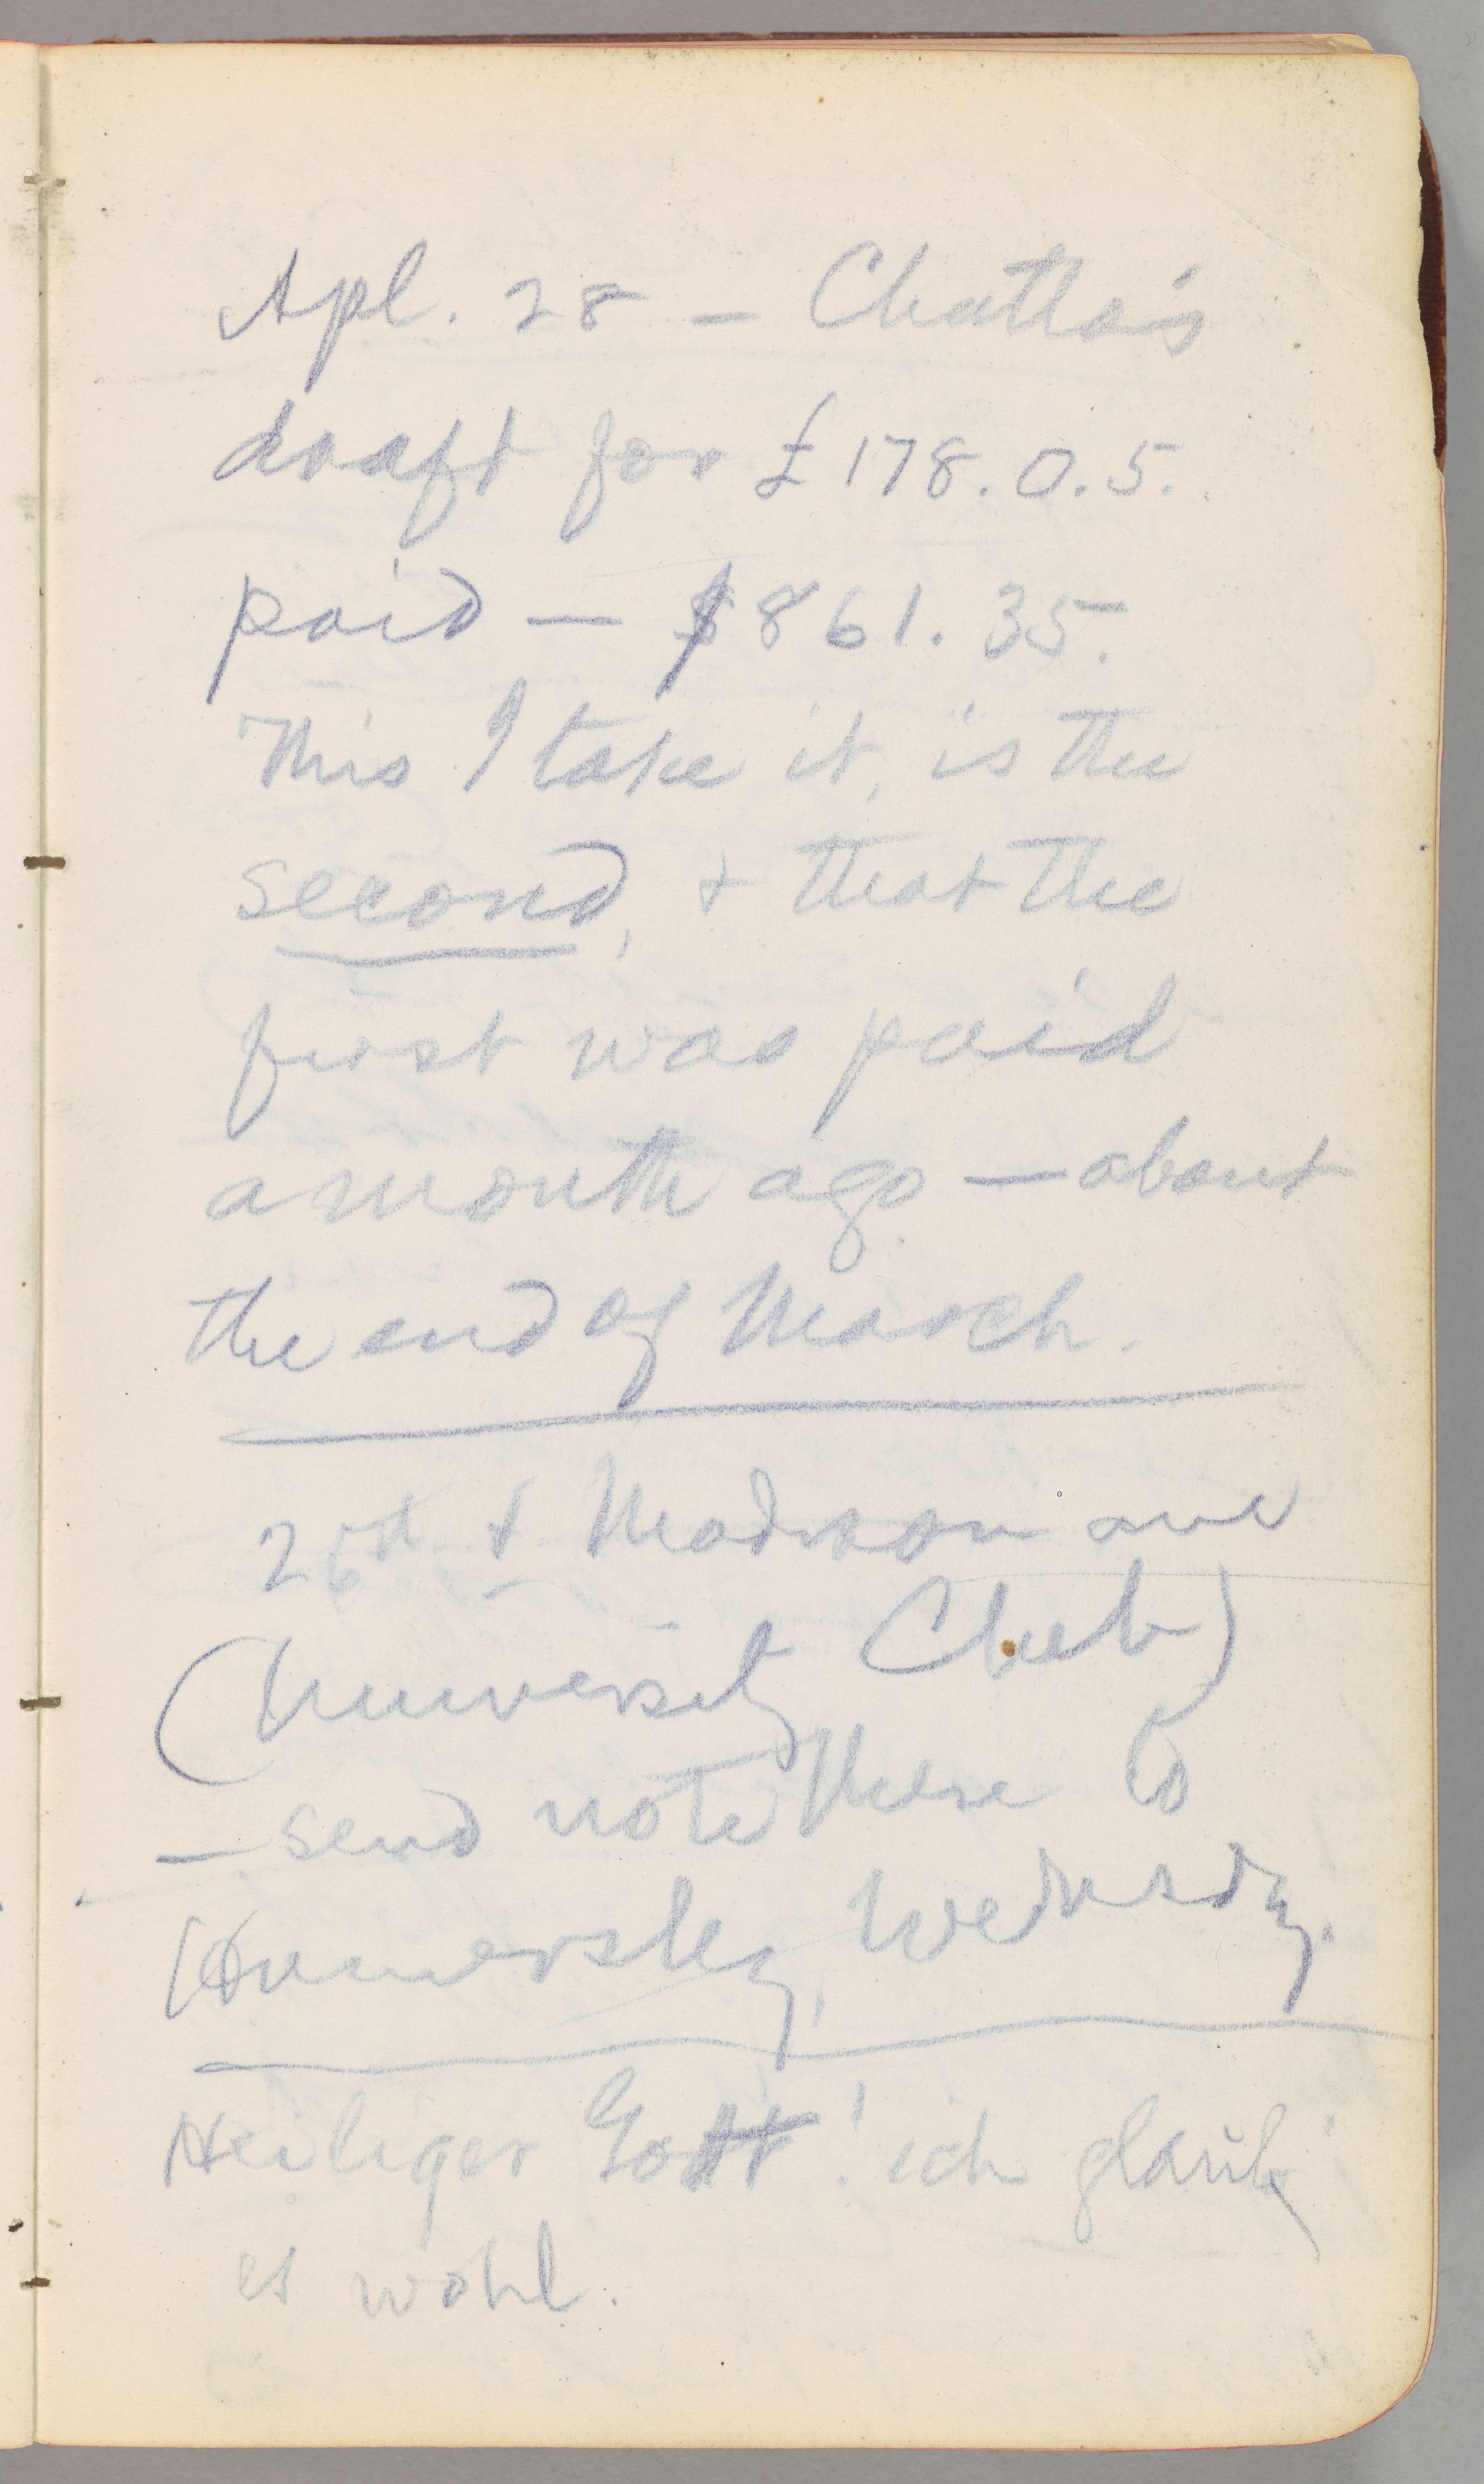 Apl. 28 — Chatto's
draft for £178.0.5.
paid — $861.35.
This I take it, is the
second, & that the
first was paid
a month ago — about
the end of March.
26th & Madison ave
(University Club)
— send note there to
Hamersley, Wednsdy.
Heiliger Gott! ich glaub'
es wohl.